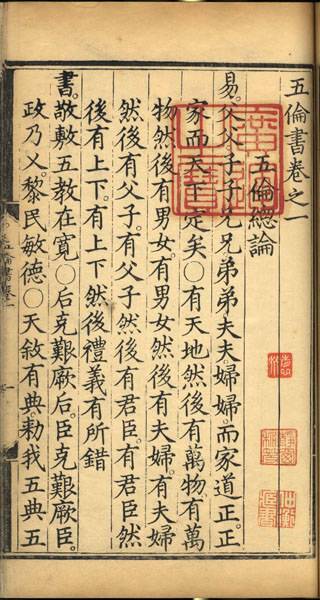 五倫書卷之一
五倫總論
易。父父子子兄兄弟弟夫夫婦婦。而家道正。正
家而天下定矣〇有天地然後有萬物。有萬
物然後有男女。有男女然後有夫婦。有夫婦
然後有父子。有父子然後有君臣。有君臣然
後有上下。有上下然後禮義有所錯
書。敬敷五教在寬〇后克艱厥后。臣克艱厥臣。
政乃乂。黎民敏德〇天敘有典。勑我五典五